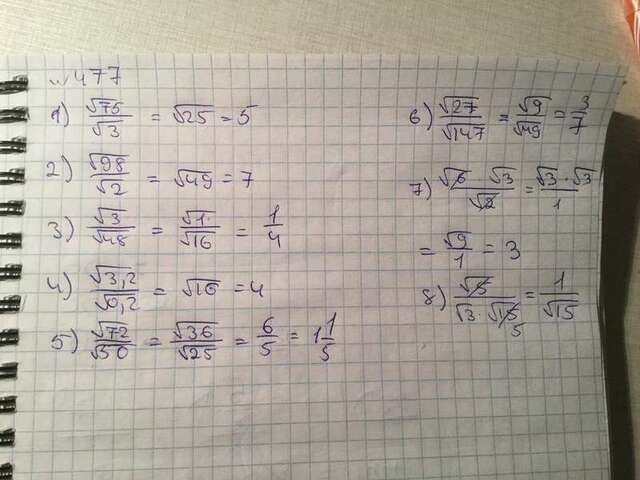 ... 477
1) √75/√3 = √25 = 5
2) √98/√2 = √49 = 7
3) √3/√48 = √1/√16 = 1/4
4) √3,2/√0,2 = √16 = 4
5) √72/√50 = √36/√25 = 6/5 = 1 1/5
6) √27/√147 = √9/√49 = 3/7
7) √6 √3/√2 = √3 · √3/1
= √9/1 = 3
8) √5/√3 · √15 5 = 1/√15